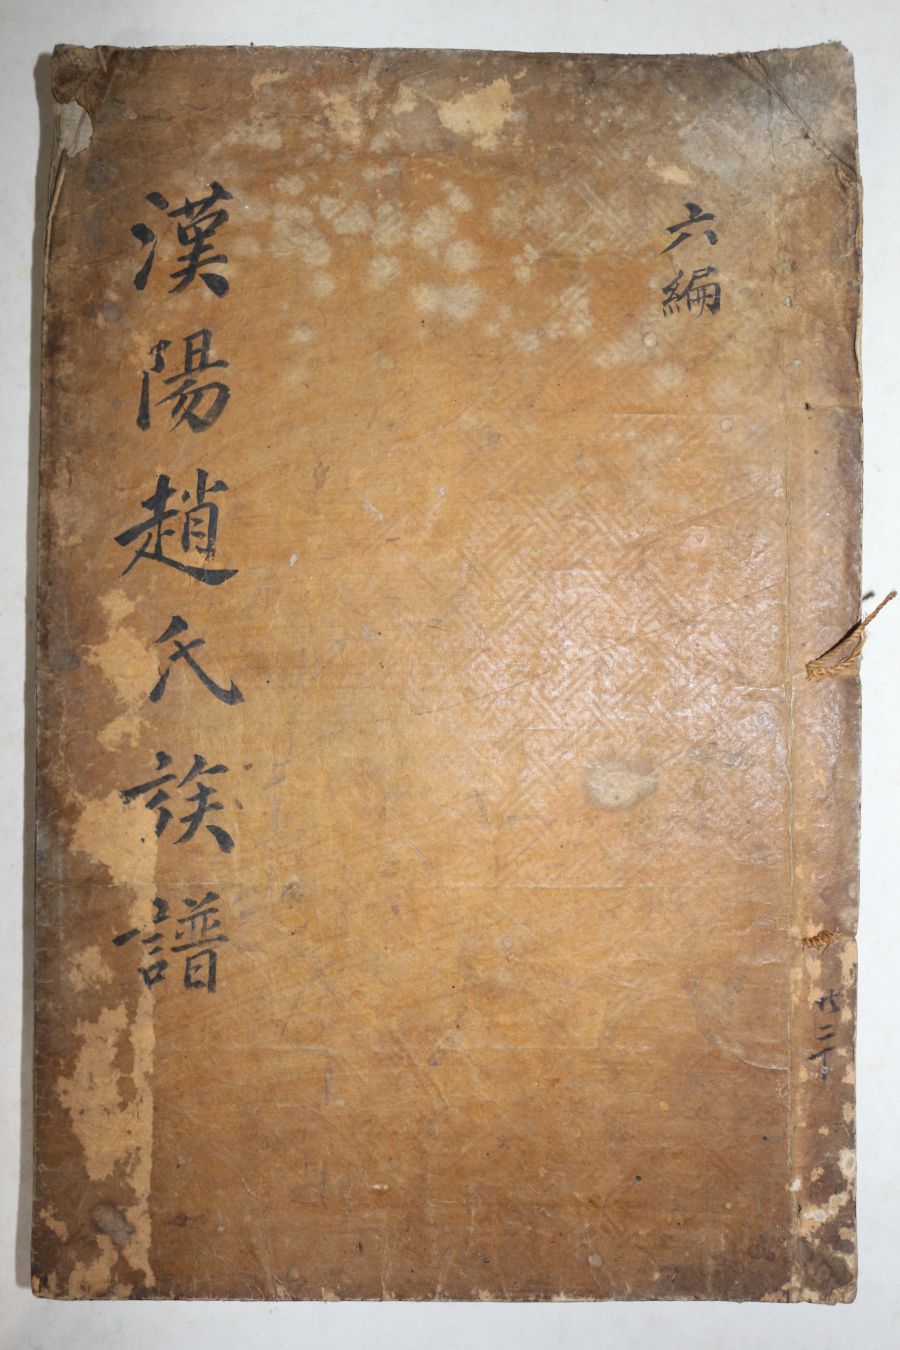 六編
漢陽趙氏族譜
共二十